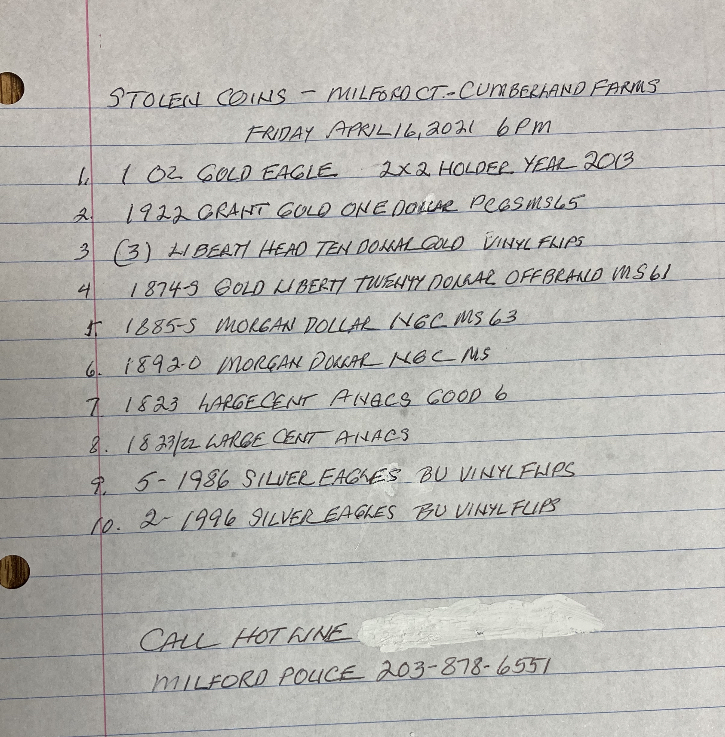 STOLEN COINS - MILFORD CT. - CUMBERLAND FARMS
FRIDAY APRIL 16, 2021 6PM
1. 1 OZ GOLD EAGLE 2X2 HOLDER YEAR 2013
2. 1922 GRANT GOLD ONE DOLLAR PCGS MS65
3 (3) LIBERTY HEAD TEN DOLLAR GOLD VINYL FLIPS
4 1874-S GOLD LIBERTY TWENTY DOLLAR OFFBRAND MS61
5. 1885-S MORGAN DOLLAR NGC MS 63
6. 1892-O MORGAN DOLLAR NGC MS
7 1823 LARGE CENT ANACS GOOD 6
8. 1823/22 LARGE CENT ANACS
9. 5- 1986 SILVER EAGLES BU VINYL FLIPS
10. 2- 1996 SILVER EAGLES BU VINYL FLIPS
CALL HOTLINE
MILFORD POLICE 203-878-6551